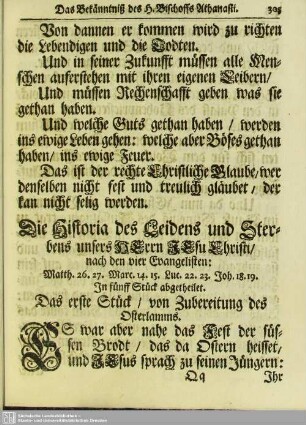 Das Bekänntniß des H. Bischoffs Athanasii. 305
Von dannen er kommen wird zu richten
die Lebendigen und die Todten.
Und in seiner Zukunfft müssen alle Men-
schen auferstehen mit ihren eigenen Leibern/
Und müssen Rechenschafft geben was sie
gethan haben.
Und welche Guts gethan haben / werden
ins ewige Leben gehen: welche aber Böses gethan
haben/ ins ewige Feuer.
Das ist der rechte Christliche Glaube/ wer
denselben nicht fest und treulich gläubet / der
kan nicht selig werden.
Die Historia des Leidens und Ster-
bens unsers HErrn JEsu Christi/
nach den vier Evangelisten:
Matth. 26. 27. Marc. 14. 15. Luc. 22. 23. Joh. 18. 19.
In fünff Stück abgetheilet.
Das erste Stück / von Zubereitung des
Osterlamms.
ES war aber nahe das Fest der süs-
sen Brodt / das da Ostern heisset/
und JEsus sprach zu seinen Jüngern:
Qq Ihr